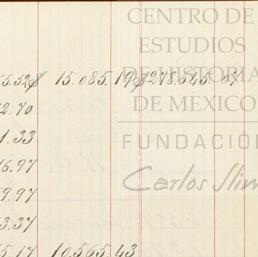 CENTRO DE
ESTUDIOS
DE HISTORIA
DE MEXICO
FUNDACIÓN
Carlos Slim
5.32 $ 15.085.19 $ 278.545.07
2.70
1.33
6.97
9.97
3.37
5.17 10.565.43